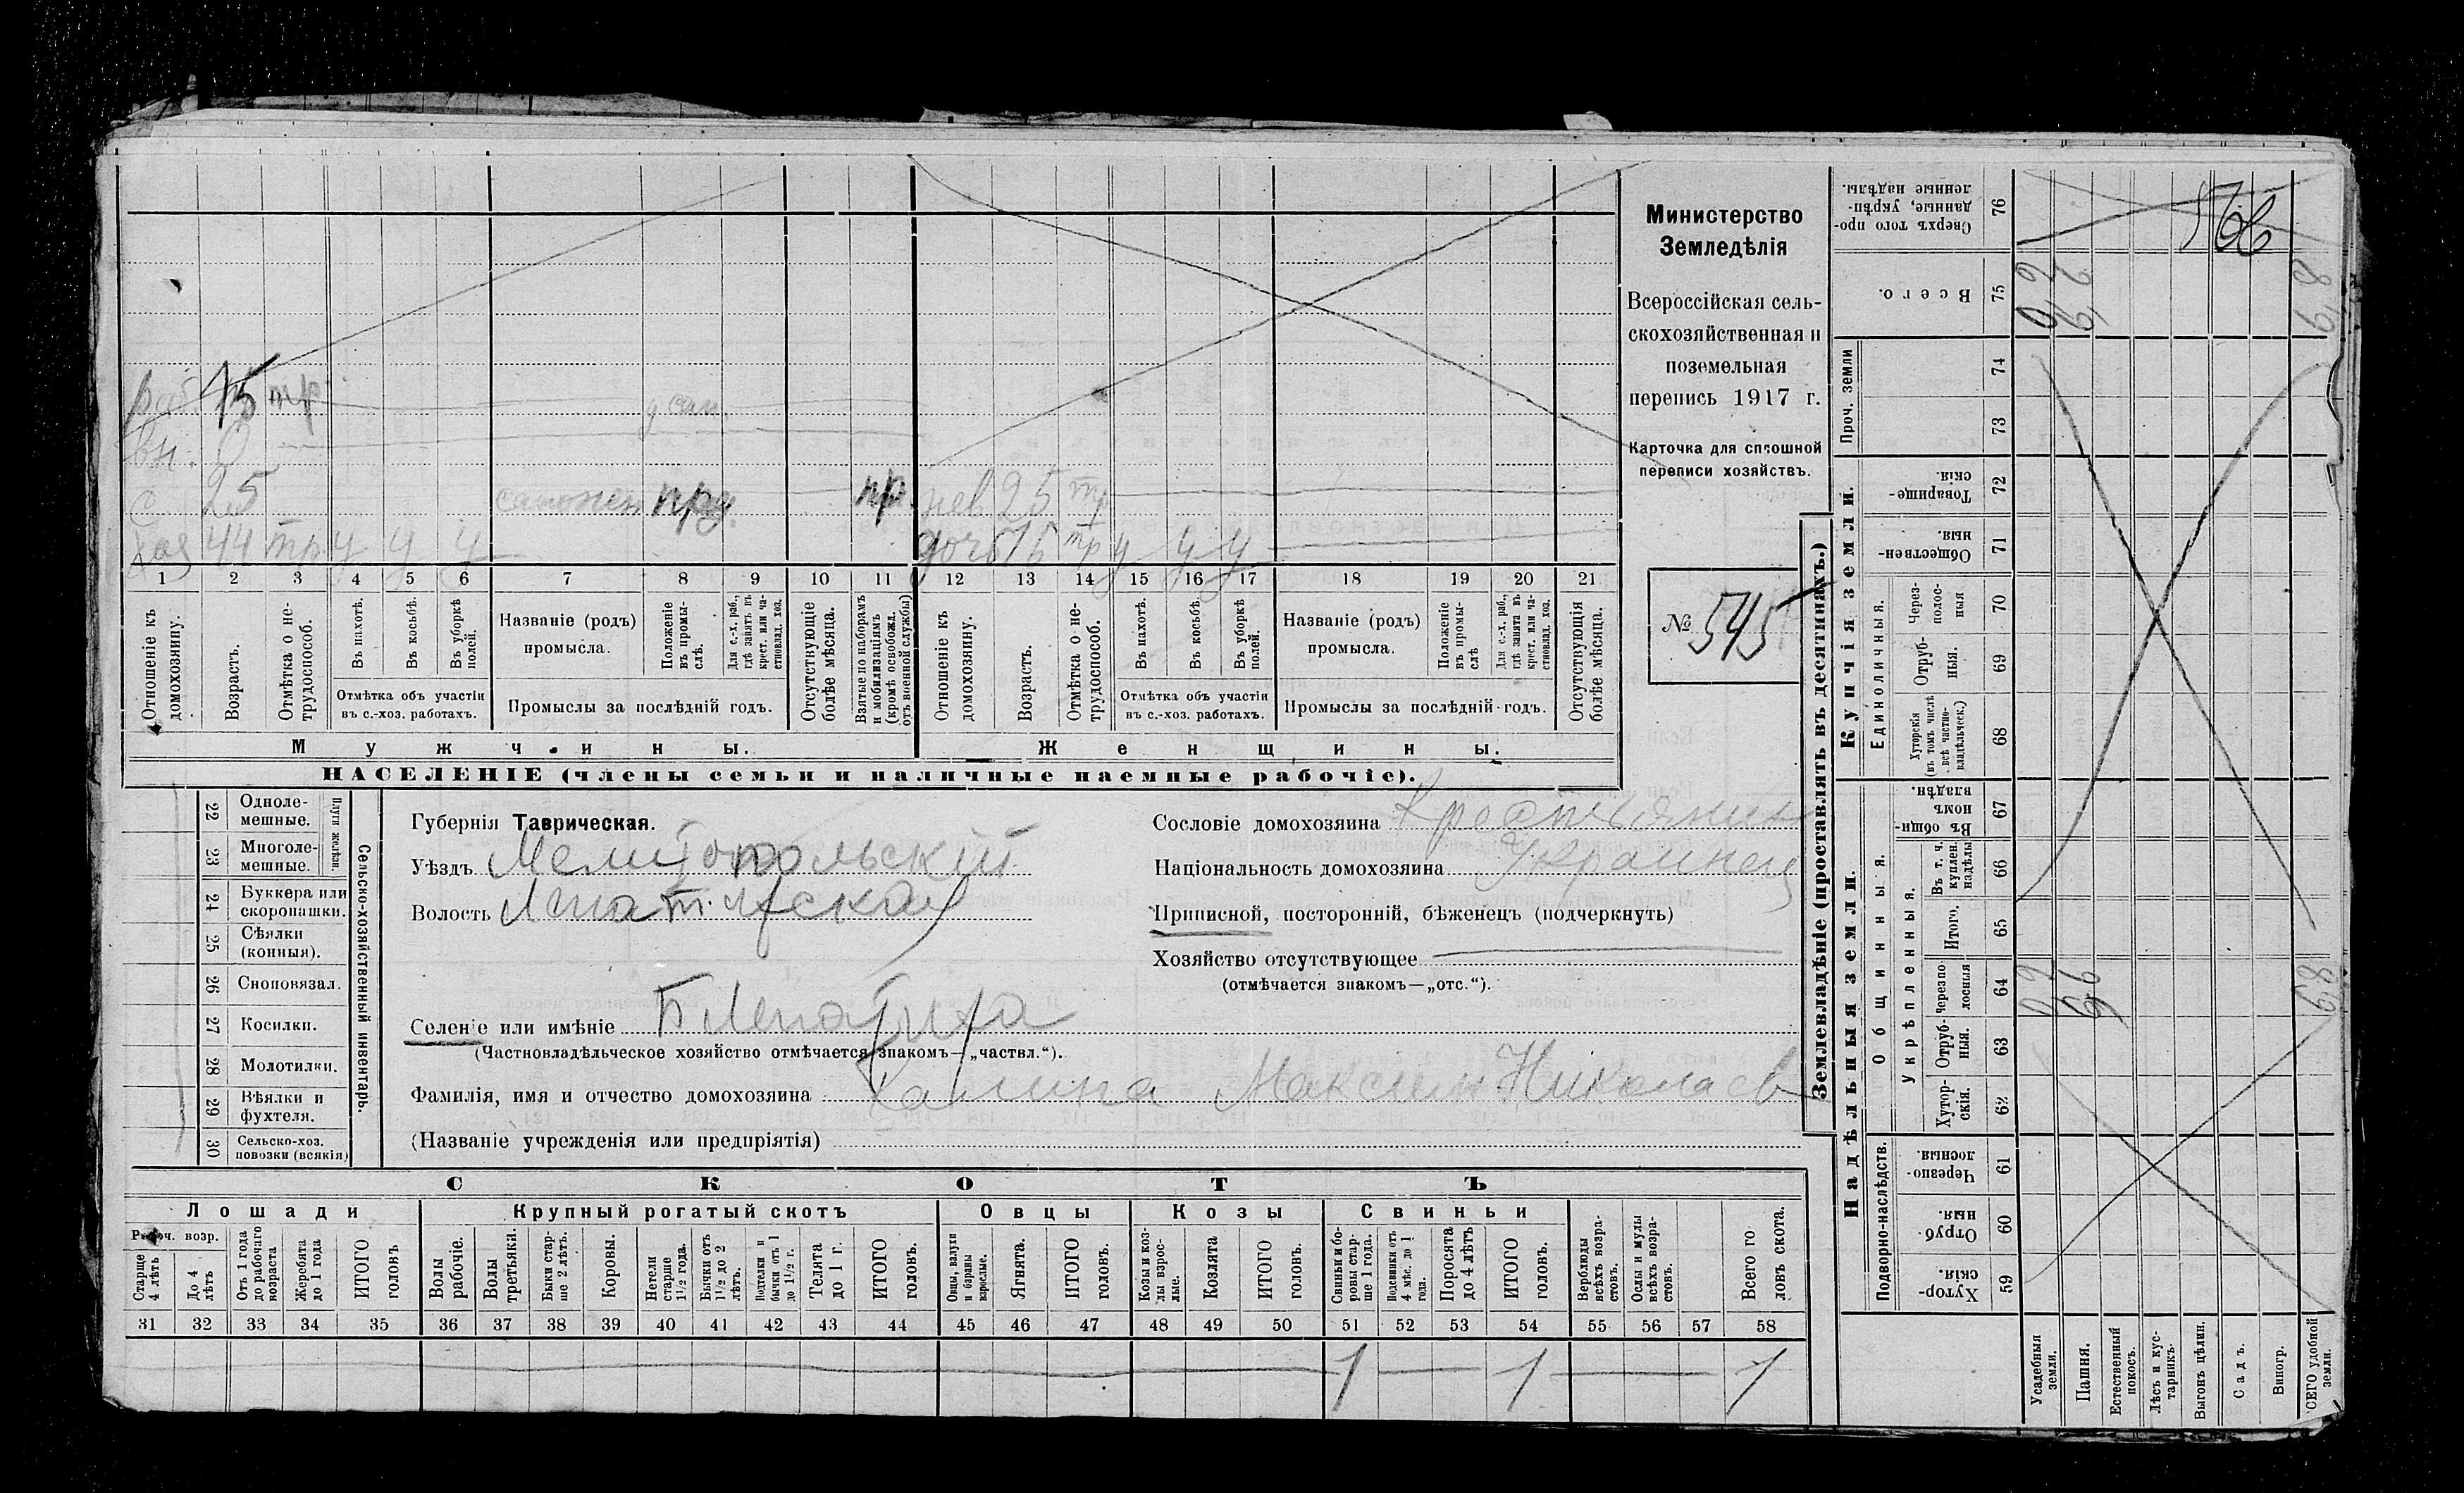 Министерство
Земледѣлія
Всероссійская сель-
скохозяйственная и
поземельная
перепись 1917 г.
Карточка для сплошной
переписи хозяйствъ.
№ 545
раб. 15 тр
вн.
с 25 сапожен пр.
нев 25 тр
хоз 44 тр у у у
дочь 16 тр у у у
1 2 3 4 5 6 7 8 9 10 11 12 13 14 15 16 17 18 19 20 21
Отношеніе къ домохозяину.
Возрастъ.
Отмѣтка о не-трудоспособ.
Въ пахотѣ.
Въ косьбѣ.
Въ уборкѣ полей.
Отмѣтка объ участіи въ с.-хоз. работахъ.
Названіе (родъ) промысла.
Положеніе въ промы-слѣ.
Для с.-х. раб., гдѣ занятъ въ крест. или ча-стновлад. хоз.
Промыслы за послѣдній годъ.
Отсутствующіе болѣе мѣсяца.
Взятые по наборамъ и мобилизаціямъ (кромѣ освобожд. отъ военной службы)
Отношеніе къ домохозяину.
Возрастъ.
Отмѣтка о не-трудоспособ.
Въ пахотѣ.
Въ косьбѣ.
Въ уборкѣ полей.
Отмѣтка объ участіи въ с.-хоз. работахъ.
Названіе (родъ) промысла.
Положеніе въ промы-слѣ
Для с.-х. раб., гдѣ занята въ крест. или ча-стновлад. хоз.
Промыслы за послѣдній годъ.
Отсутствующія болѣе мѣсяца.
Мужчины.
Женщины.
НАСЕЛЕНІЕ (члены семьи и наличные наемные рабочіе).
Сельско-хозяйственный инвентарь.
Плуги желѣзн.
22 Одноле-мешные.
23 Многоле-мешные.
24 Буккера или скоропашки.
25 Сѣялки (конныя).
26 Сноповязал.
27 Косилки.
28 Молотилки.
29 Вѣялки и фухтеля.
30 Сельско-хоз. повозки (всякія)
Губернія Таврическая.
Уѣздъ Мелитопольскій
Волость
Селеніе или имѣніе Б Лепатиха
(Частновладѣльческое хозяйство отмѣчается знакомъ—„частвл.“).
Фамилія, имя и отчество домохозяина Калина Максим Николаев
(Названіе учрежденія или предпріятія)
Сословіе домохозяина Крестьянин
Національность домохозяина Украинец
Приписной, посторонній, бѣженецъ (подчеркнуть)
Хозяйство отсутствующее
(отмѣчается знакомъ—„отс.“).
СКОТЪ
Лошади
Крупный рогатый скотъ
Овцы
Козы
Свиньи
Рабоч. возр.
Старше 4 лѣтъ
До 4 лѣтъ
Отъ 1 года до рабочаго возраста
Жеребята до 1 года
ИТОГО головъ
Волы рабочіе.
Волы третьяки.
Быки стар-ше 2 лѣтъ.
Коровы.
Нетели старше 1½ года.
Бычки отъ 1½ до 2 лѣтъ.
Подтелки и бычки отъ 1 до 1½ г.
Телята до 1 г.
ИТОГО головъ.
Овцы, валухи и бараны взрослые.
Ягнята.
ИТОГО головъ.
Козы и коз-лы взрос-лые.
Козлята
ИТОГО головъ.
Свиньи и бо-ровы стар-ше 1 года.
Подсвинки отъ 4 мѣс. до 1 года.
Поросята до 4 лѣтъ
ИТОГО головъ.
Верблюды всѣхъ возра-стовъ.
Ослы и мулы всѣхъ возра-стовъ.
Всего го-ловъ скота.
31 32 33 34 35 36 37 38 39 40 41 42 43 44 45 46 47 48 49 50 51 52 53 54 55 56 57 58
1 1 1
Землевладѣніе (проставлять въ десятинахъ.)
Купчія земли.
Надѣльныя земли.
Сверхъ того про-данные, укрѣп-ленные надѣлы. 76
Всего. 75
Проч. земли 74 73
Товарище-скія 72
Обществен-ныя. 71
Единоличныя.
Через-полос-ныя 70
Отруб-ныя. 69
Хуторскія (въ томъ числѣ всѣ частно-владѣльческ.) 68
Общинныя.
Въ общи-номъ владѣн. 67
Укрѣпленныя.
Въ т. ч. куплен. надѣлы 66
Итого. 65
Черезпо-лосныя 64
Отруб-ныя. 63
Хутор-скія. 62
Подворно-наслѣдств.
Черезпо-лосныя. 61
Отруб-ныя. 60
Хутор-скія. 59
Усадебныя земли.
Пашня.
Естественный покосъ.
Лѣсъ и кус-тарникъ.
Выгонъ цѣлин.
Садъ.
Виногр.
ВСЕГО удобной земли.